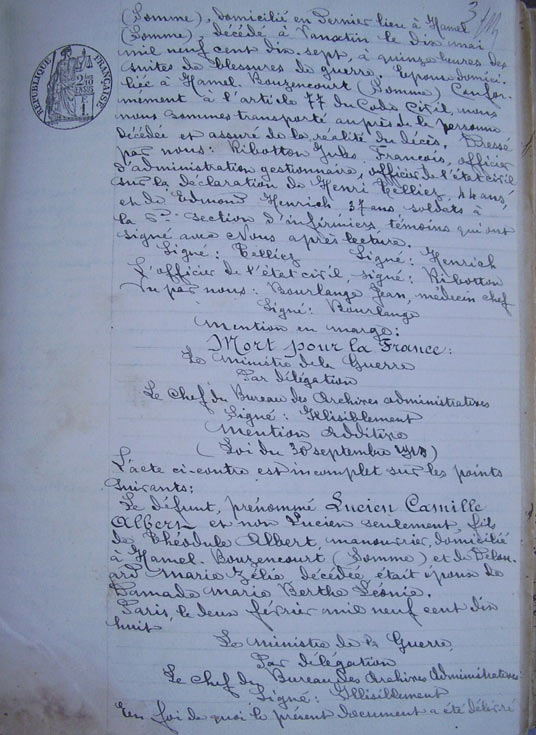 (Somme), domicilié en dernier lieu à Hamel
(Somme), décédé à le dix mai
mil neuf cent dix-sept, à quinze heures des
suites de blessures de guerre. Epoux domici-
lié à Hamel. Bouzencourt (Somme) Confor-
mement à l'article 77 du Code Civil, nous
nous sommes transporté auprès de la personne
décédée et assuré de la réalité du décès. Dressé
par nous: Ribotton Jules François, officier
d'administration gestionnaire, officier de l'état civil
sur la déclaration de Henri Telliez, 44 ans,
et de Edmond Henrich 37 ans soldats à
la 6e section d'infirmiers, témoins qui ont
signé avec Nous après lecture.
Signé: Telliez Signé: Henrich
L'officier de l'état civil, signé: Ribotton
Vu par nous: Bourlange Jean, médecin chef
Signé: Bourlange
Mention en marge:
Mort pour la France:
Le ministre de la Guerre
Par délégation
Le Chef du Bureau des Archives administratives
Signé: Illisiblement
Mention Additive
(Loi du 30 septembre)
L'acte ci-contre est incomplet sur les points
suivants:
Le défunt, prénommé Lucien Camille
Albert et non Lucien seulement, fils
de Théodule Albert, manouvrier, domicilié
à Hamel. Bouzencourt (Somme) et de
Marie Zélie, décédée, était époux de
Damade Marie Berthe Léonie.
Paris, le deux février mil neuf cent dix
huit
Le ministre de la Guerre,
Par délégation
Le Chef du Bureau des Archives Administratives:
Signé: Illisiblement
En foi de quoi le présent document a été délivré
RÉPUBLIQUE FRANÇAISE